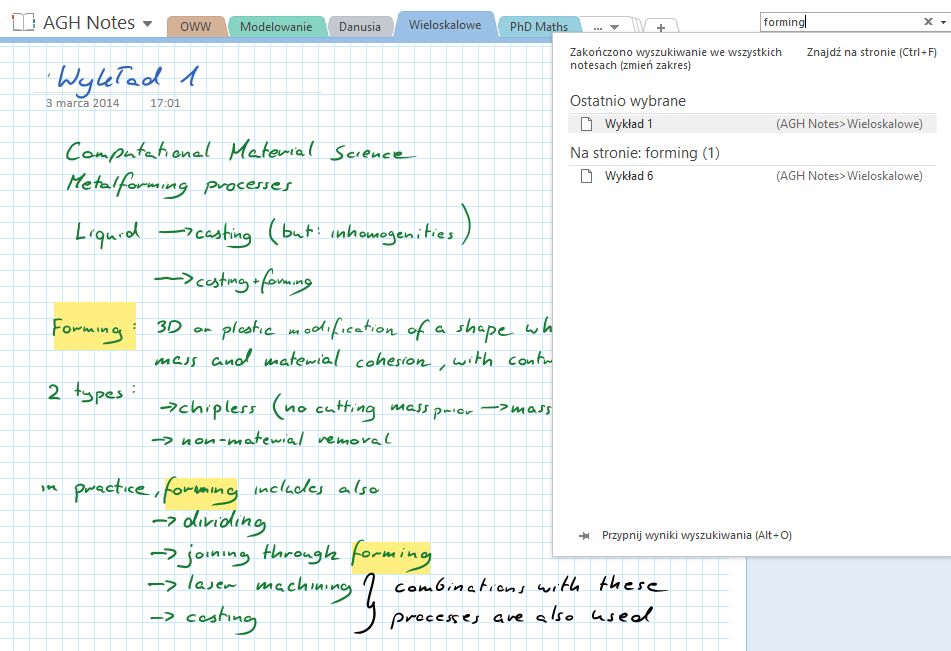 AGH Notes
OWW
Modelowanie
Danusia
Wieloskalowe
PhD Maths
...
+
forming
Zakończono wyszukiwanie we wszystkich
notesach (zmień zakres)
Znajdź na stronie (Ctrl+F)
Ostatnio wybrane
Wykład 1 (AGH Notes>Wieloskalowe)
Na stronie: forming (1)
Wykład 6 (AGH Notes>Wieloskalowe)
Przypnij wyniki wyszukiwania (Alt+O)
Wykład 1
3 marca 2014 17:01
Computational Material Science
Metalforming processes
Liquid → casting (but: inhomogenities)
→ casting + forming
Forming: 3D or plastic modification of a shape wh
mass and material cohesion, with contr
2 types:
→ chipless (no cutting mass prior → mass
→ non-material removal
in practice, forming includes also
→ dividing
→ joining through forming
→ laser machining } combinations with these
→ casting processes are also used